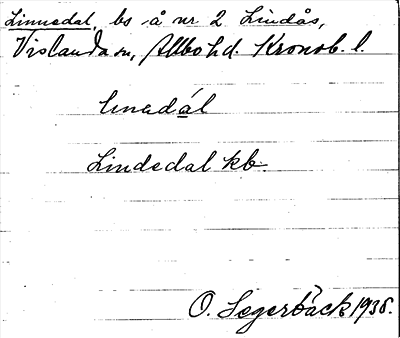 Linnedal, bs å nr 2 Lindås,
Vislanda sn, Allbo hd. Kronob. l.
linedál
Lindedal kb.
O. Segerbäck 1938.